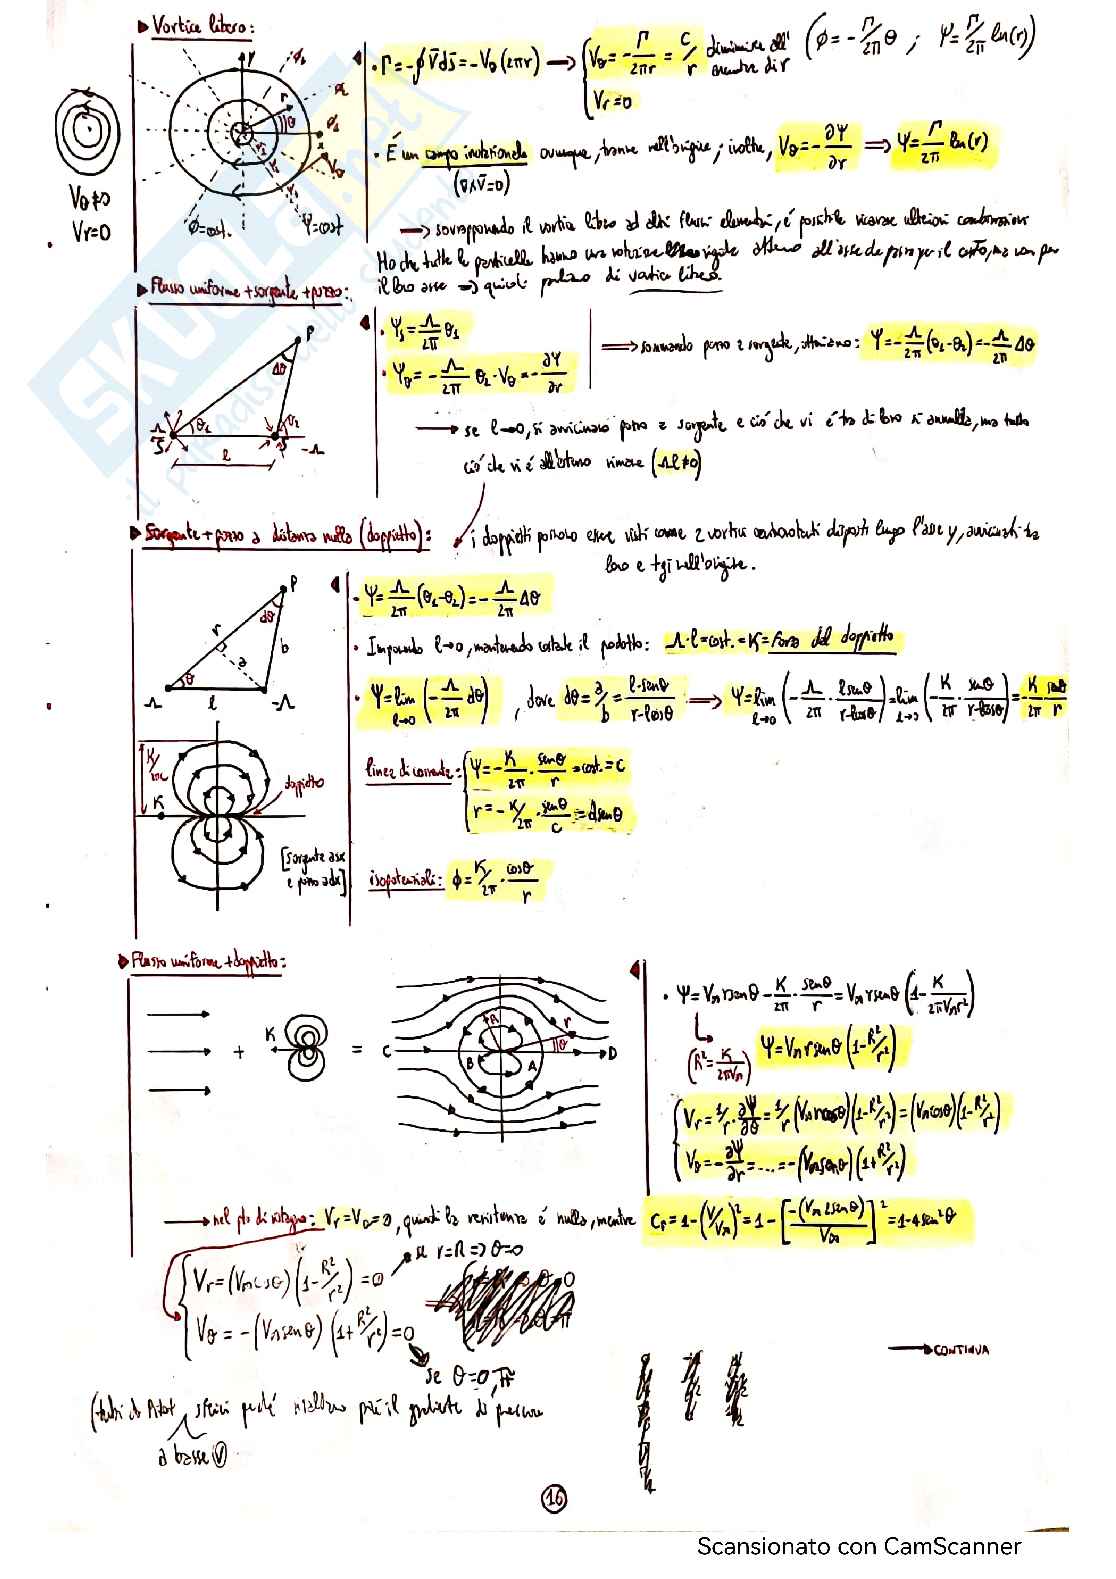 Vortice libero:
Γ=-∮V̄ds̄=-Vθ(2πr) → { Vθ=-Γ/2πr=C/r diminuisce all'aumentare di r (φ=-Γ/2π θ ; Ψ=Γ/2π ln(r))
Vr=0
Vθ≠0
Vr=0
φ=cost.
Ψ=cost
È un campo irrotazionale ovunque, tranne nell'origine; inoltre, Vθ=-∂Ψ/∂r ⟹ Ψ=Γ/2π ln(r)
(∇∧V̄=0)
→ sovrapponendo il vortice libero ad altri flussi elementari, è possibile ricavare ulteriori combinazioni
Ho che tutte le particelle hanno una rotazione rigida attorno all'asse che passa per il centro, ma non per
il loro asse ⟹ quindi parliamo di vortice libero.
Flusso uniforme + sorgente + pozzo:
Ψs=Λ/2π θ1
Ψθ=-Λ/2π θ2 - Vθ=-∂Ψ/∂r
⟹ sommando pozzo e sorgente, otteniamo: Ψ=-Λ/2π(θ1-θ2)=-Λ/2π Δθ
P
Δθ
θ1
θ2
Λ
-Λ
l
→ se l→0, si avvicinano pozzo e sorgente e ciò che vi è tra di loro si annulla, ma tutto
ciò che vi è all'esterno rimane (Λl≠0)
Sorgente + pozzo a distanza nulla (doppietto):
i doppietti possono essere visti come 2 vortici controrotanti disposti lungo l'asse y, avvicinati tra
loro e tgi nell'origine.
Ψ=Λ/2π(θ1-θ2)=-Λ/2π Δθ
P
dθ
r
b
a
θ
Λ
l
-Λ
Imponendo l→0, mantenendo costante il prodotto: Λ·l=cost.=K=forza del doppietto
Ψ=lim l→0 (-Λ/2π dθ), dove dθ=a/b=l·senθ/r-lcosθ ⟹ Ψ=lim l→0 (-Λ/2π · lsenθ/r-lcosθ)=lim l→0 (-K/2π · senθ/r-lcosθ)=-K/2π senθ/r
linee di corrente: { Ψ=-K/2π · senθ/r=cost.=C
r=-K/2π · senθ/C=dsenθ
K
doppietto
[sorgente a sx
e pozzo a dx]
isopotenziali: φ=K/2π · cosθ/r
Flusso uniforme + doppietto:
+ K = C
R
r
θ
D
B
A
Ψ=V∞rsenθ-K/2π · senθ/r=V∞rsenθ(1-K/2πV∞r²)
(R²=K/2πV∞) Ψ=V∞rsenθ(1-R²/r²)
Vr=1/r · ∂Ψ/∂θ=1/r(V∞rcosθ)(1-R²/r²)=(V∞cosθ)(1-R²/r²)
Vθ=-∂Ψ/∂r=....=-(V∞senθ)(1+R²/r²)
→ nel pto di ristagno: Vr=Vθ=0, quindi la resistenza è nulla, mentre Cp=1-(V/V∞)²=1-[-(V∞2senθ)/V∞]²=1-4sen²θ
Vr=(V∞cosθ)(1-R²/r²)=0
se r=R ⟹ θ=0
Vθ=-(V∞senθ)(1+R²/r²)=0
se θ=0,π
→ CONTINUA
(tubi di Pitot sferici perché risaltano più il gradiente di pressione
a basse V
16
Scansionato con CamScanner